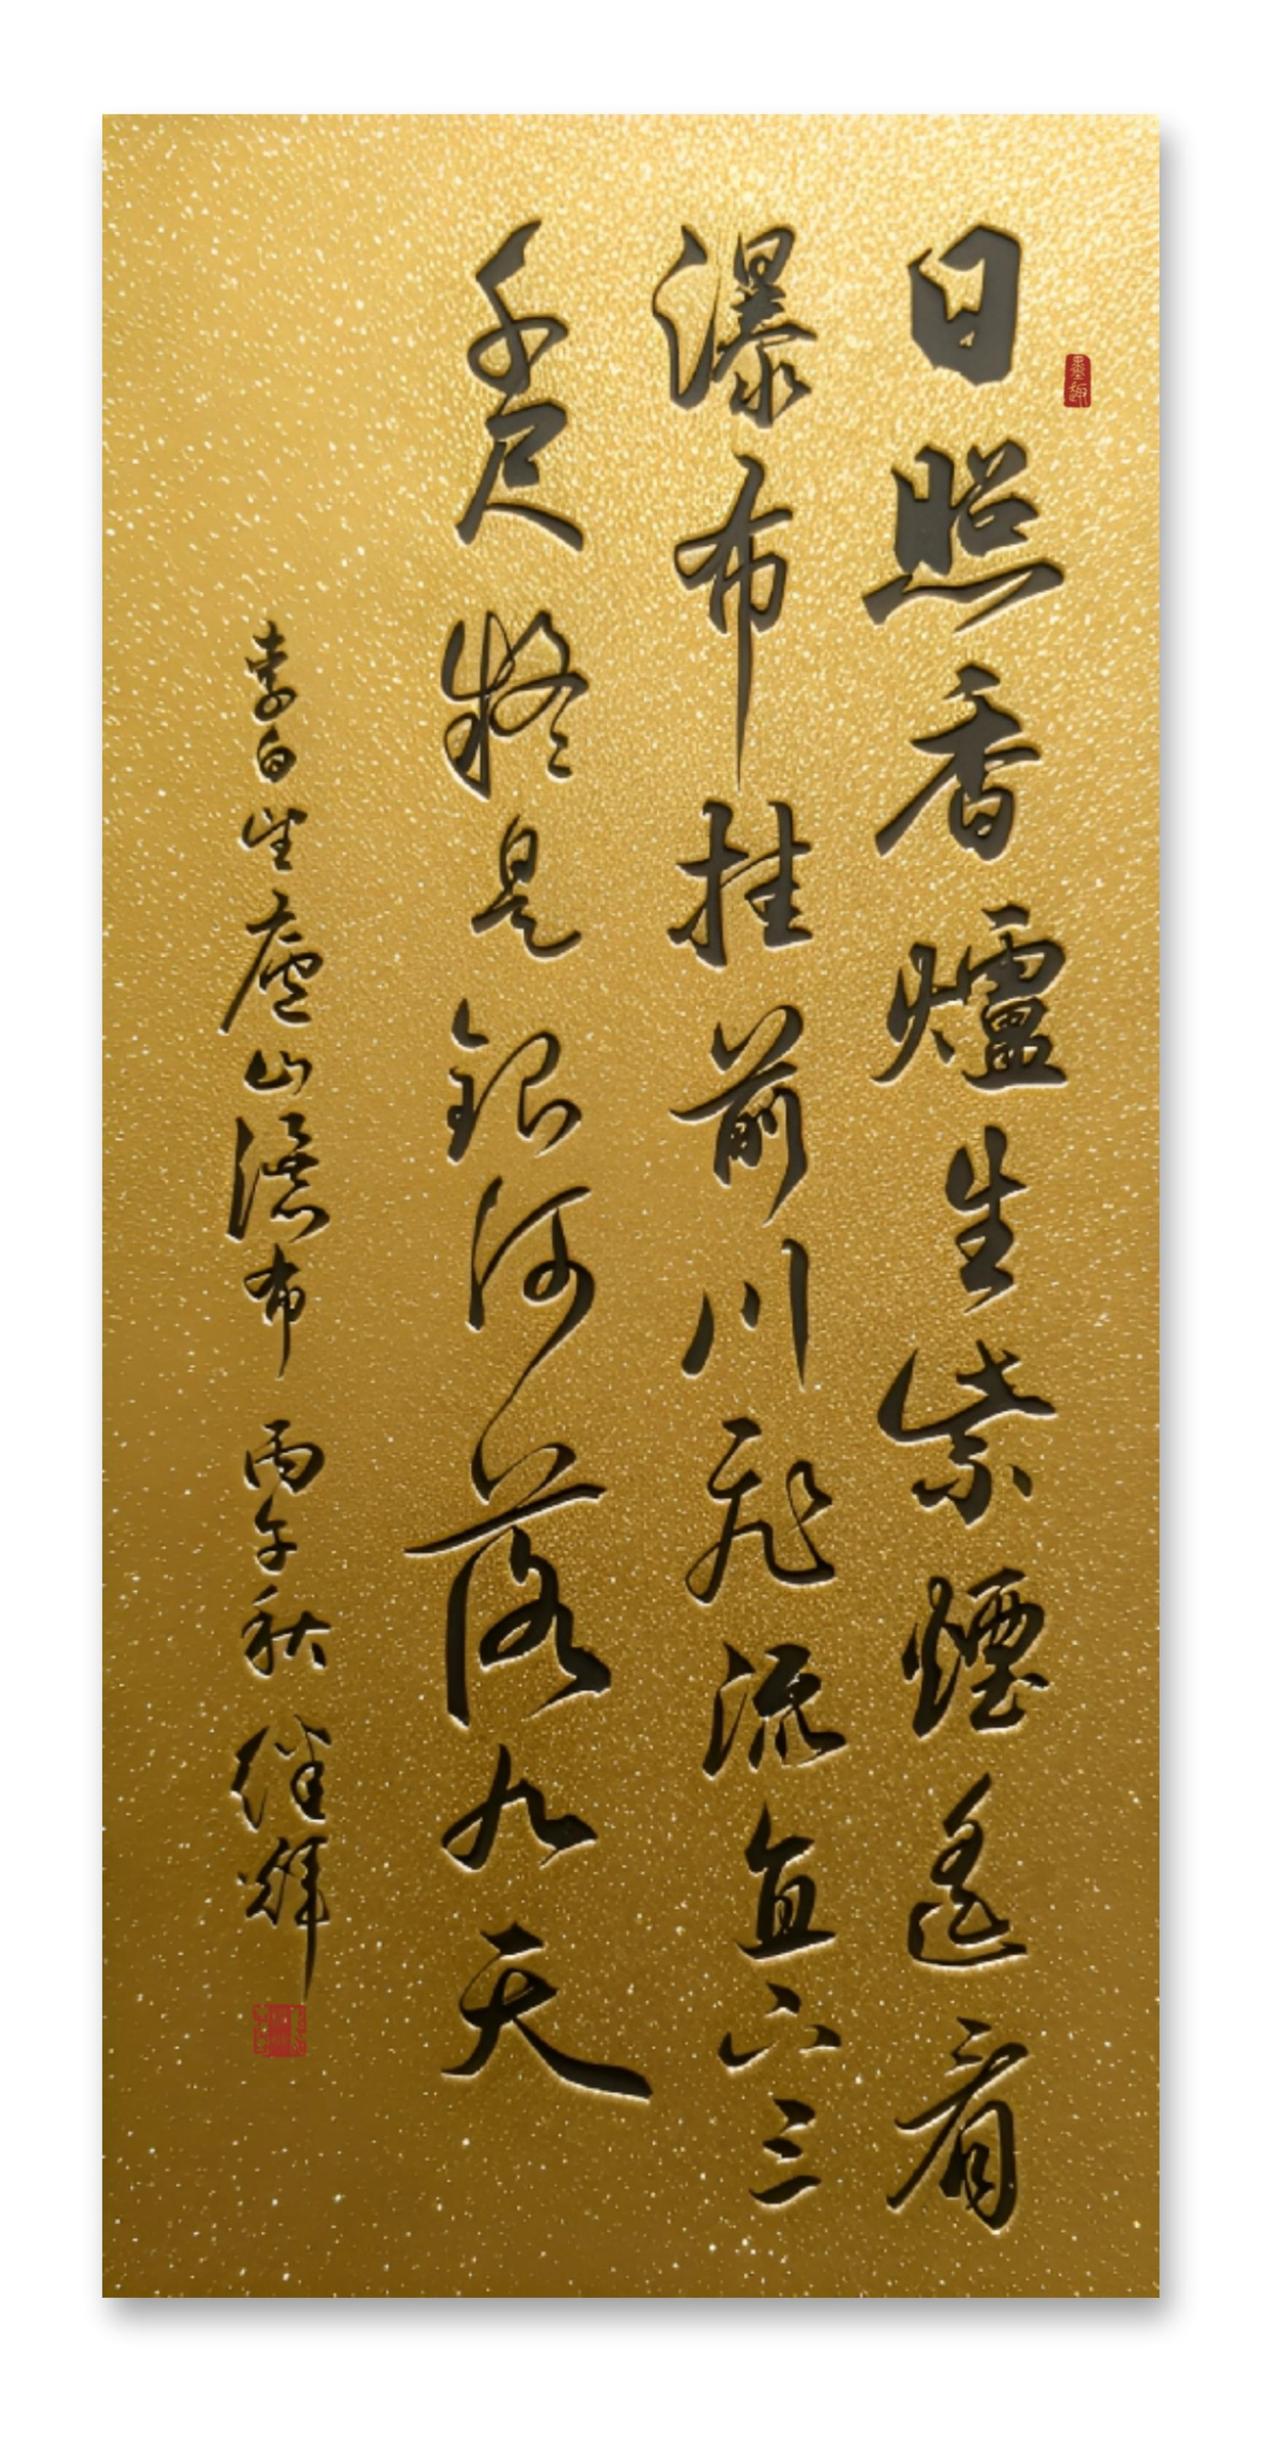 墨趣
日照香爐生紫煙遙看
瀑布挂前川飛流直下三
千尺疑是銀河落九天
李白望廬山瀑布 丙午秋 輝